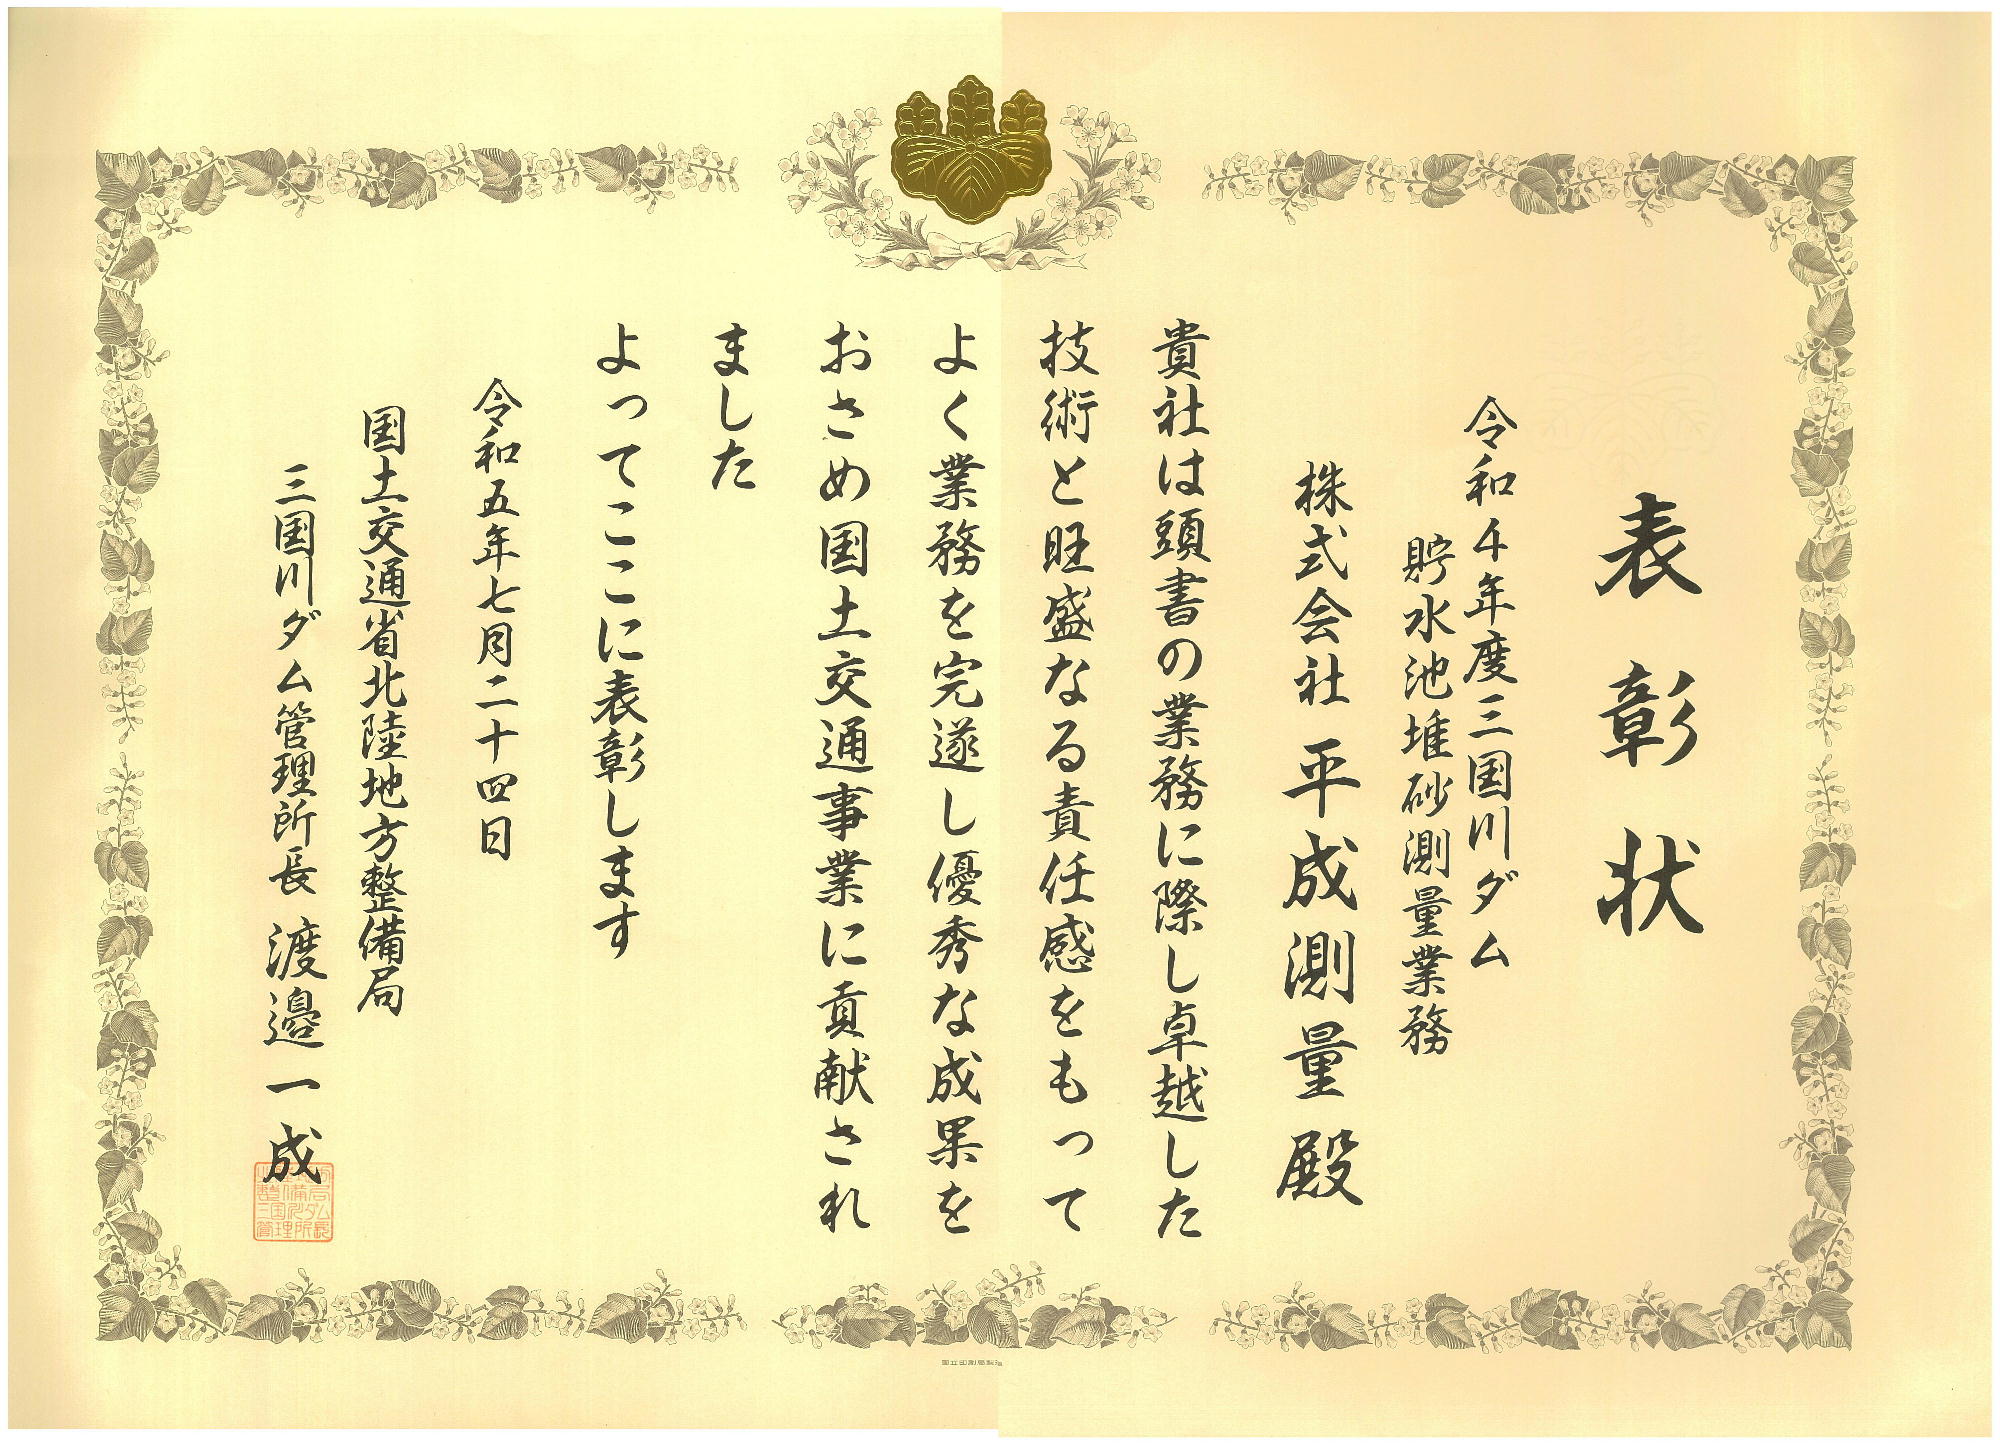 表彰状
令和4年度三国川ダム
貯水池堆砂測量業務
株式会社 平成測量 殿
貴社は頭書の業務に際し卓越した
技術と旺盛なる責任感をもって
よく業務を完遂し優秀な成果を
おさめ国土交通事業に貢献され
ました
よってここに表彰します
令和五年七月二十四日
国土交通省北陸地方整備局
三国川ダム管理所長 渡邉一成
国立印刷局製造